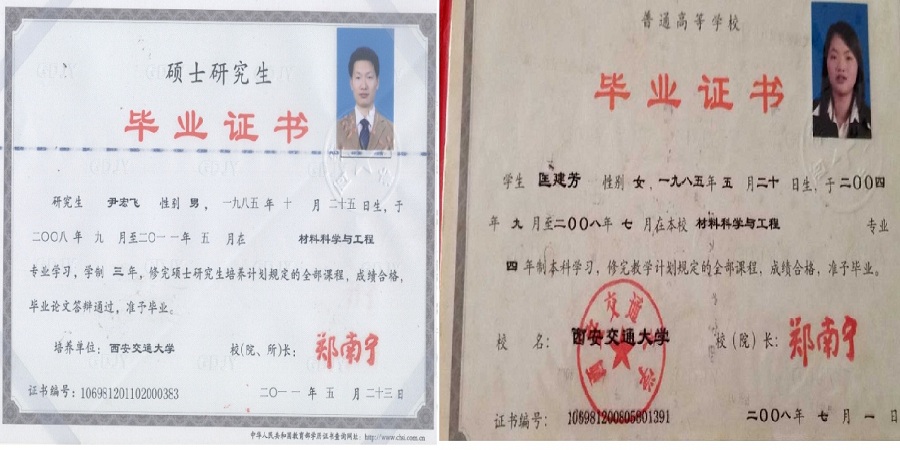 硕士研究生
毕业证书
研究生 尹宏飞 性别 男，一九八五年 十 月二十五日生，于
二〇〇八年 九 月至二〇一一年 五 月在 材料科学与工程
专业学习，学制 三 年，修完硕士研究生培养计划规定的全部课程，成绩合格，
毕业论文答辩通过，准予毕业。
培养单位：西安交通大学 校(院、所)长：郑南宁
证书编号：106981201102000383 二〇一一 年 五 月 二十三日
中华人民共和国教育部学历证书查询网址：http://www.chsi.com.cn
普通高等学校
毕业证书
学生 匡建芳 性别 女，一九八五年 五 月二十 日生，于二〇〇四
年 九 月至二〇〇八年 七 月在本校 材料科学与工程 专业
四 年制本科学习，修完教学计划规定的全部课程，成绩合格，准予毕业。
校 名：西安交通大学 校(院)长：郑南宁
证书编号：106981200805001391 二〇〇八年 七 月 一 日